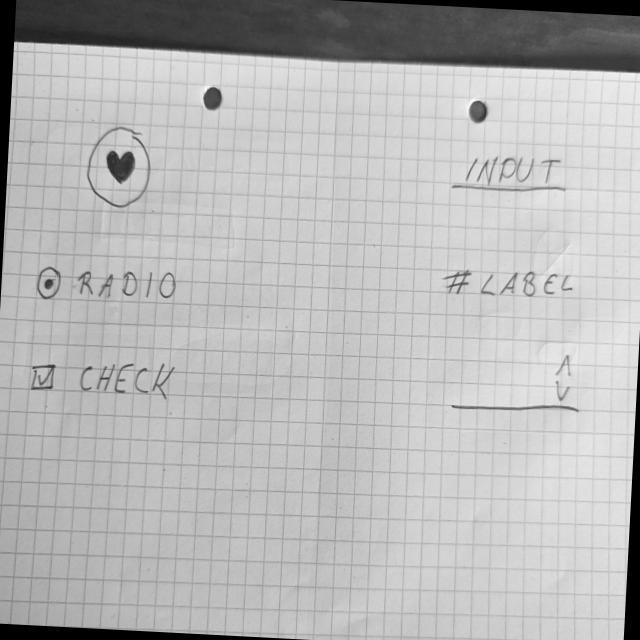 INPUT
RADIO
#LABEL
CHECK